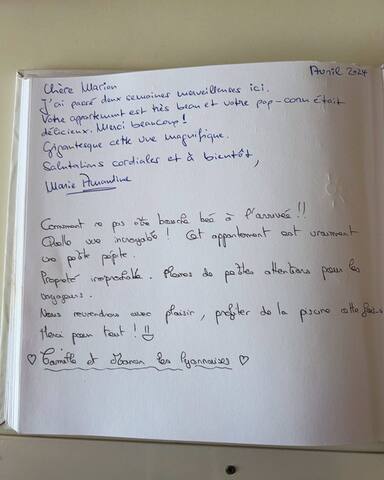 Avril 2024
Chère Marion
J'ai passé deux semaines merveilleuses ici.
Votre appartement est très beau et votre pop-corn était
délicieux. Merci beaucoup!
Gigantesque cette vue magnifique.
Salutations cordiales et à bientôt,
Marie Amandine
Comment ne pas être bouche bée à l'arrivée!!
Quelle vue incroyable! Cet appartement est vraiment
une petite pépite.
Propreté irréprochable. Pleins de petites attentions pour les
voyageurs.
Nous reviendrons avec plaisir, profiter de la piscine cette fois
Merci pour tout!
Camille et Manon les lyonnaises